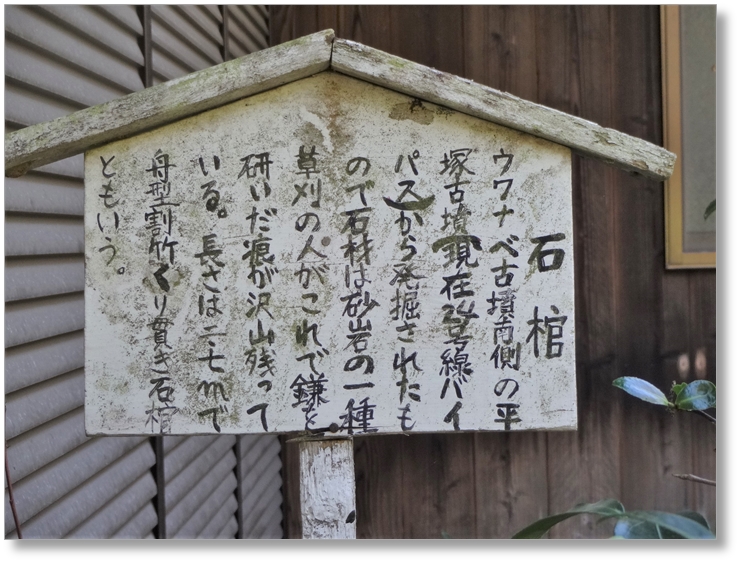 石棺
ウワナベ古墳南側の平
塚古墳(現在24号線バイ
パス)から発掘されたも
ので石材は砂岩の一種
草刈の人がこれで鎌を
研いだ痕が沢山残って
いる。長さは二・七mで
舟型割竹くり貫き石棺
ともいう。